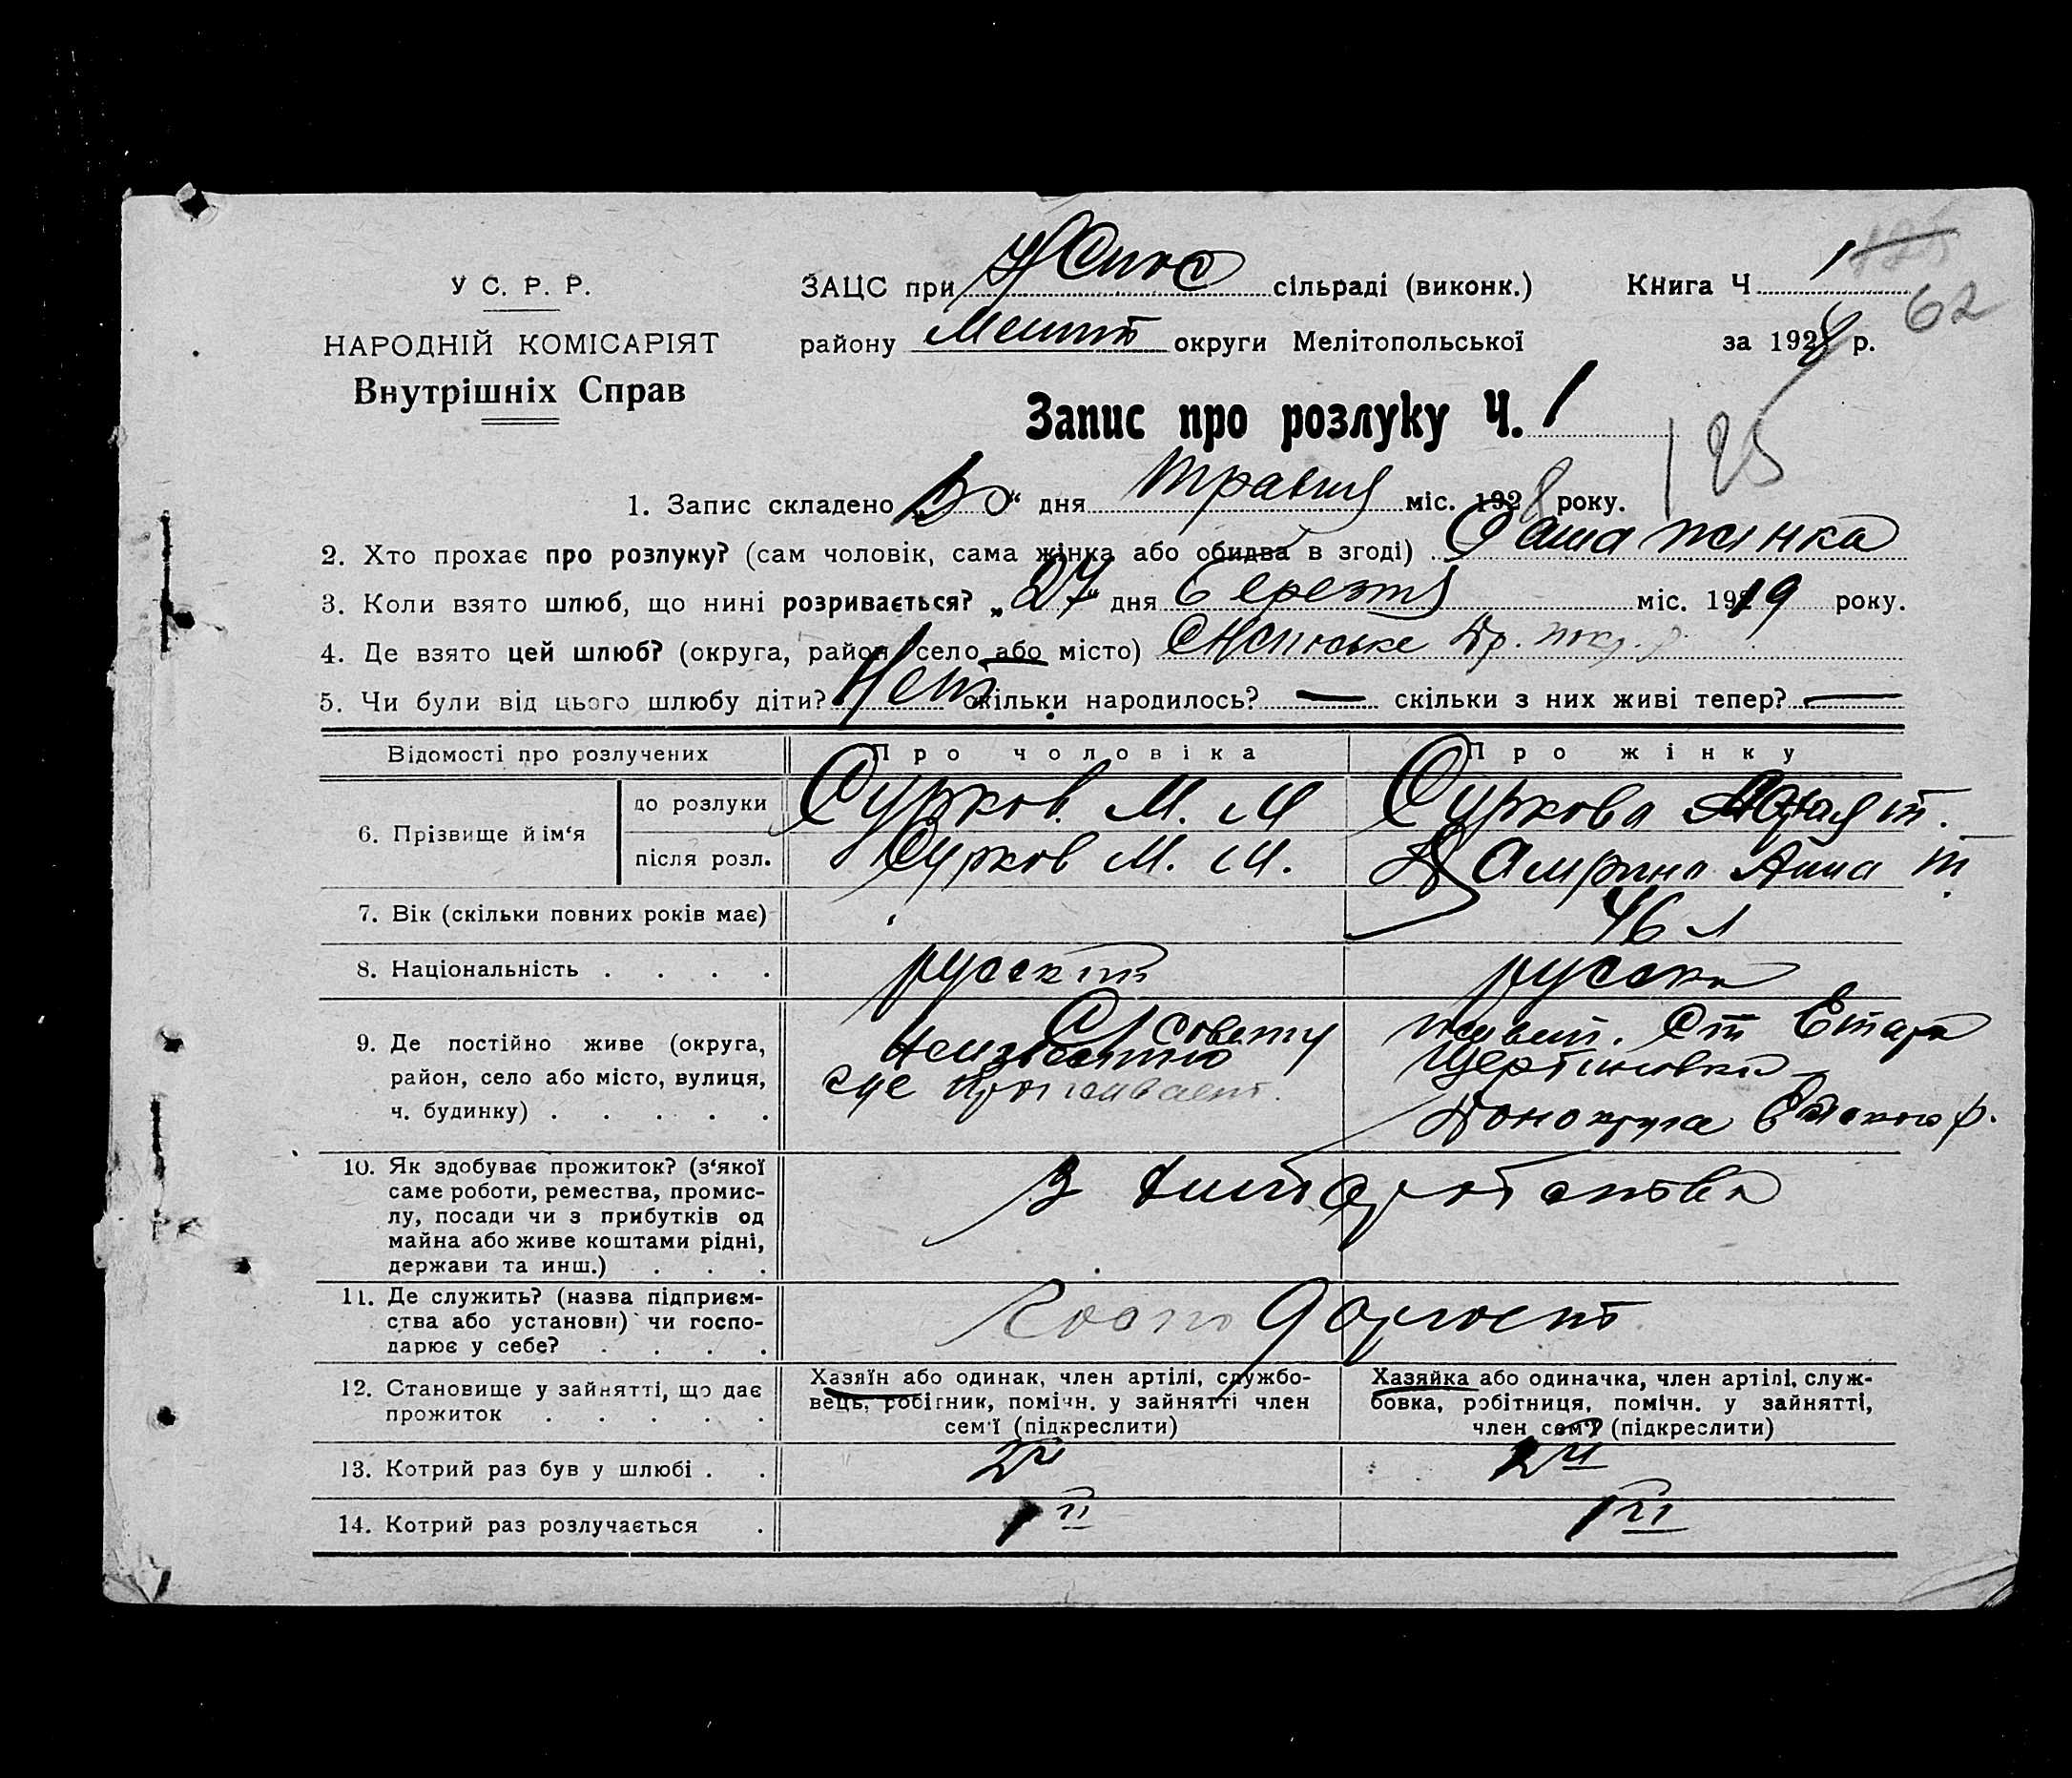 У С. Р. Р.
НАРОДНІЙ КОМІСАРІЯТ
Внутрішніх Справ
ЗАЦС при сільраді (виконк.)
Книга Ч 1 125
62
району Мелит округи Мелітопольської
за 1928 р.
Запис про розлуку Ч. 1
125
1. Запис складено „ “ дня травня міс. 1928 року.
2. Хто прохає про розлуку? (сам чоловік, сама жінка або обидва в згоді) Сама жінка
3. Коли взято шлюб, що нині розривається? „27“ дня березня міс. 1919 року.
4. Де взято цей шлюб? (округа, район, село або місто)
5. Чи були від цього шлюбу діти? Нет скільки народилось? — скільки з них живі тепер? —
Відомості про розлучених
Про чоловіка
Про жінку
6. Прізвище й ім‘я
до розлуки
Сурков. М. М
Суркова т.
після розл.
Сурков М. М.
Анна т.
7. Вік (скільки повних років має)
46 л
8. Національність . . . .
русский
руска
9. Де постійно живе (округа,
район, село або місто, вулиця,
ч. будинку) . . . . .
Сельсовету
Неизвестно
где проживает.
живет. Ст Стара
Щербиновка
Донокруга Ейского р.
10. Як здобуває прожиток? (з‘якої
саме роботи, ремества, промис-
лу, посади чи з прибутків од
майна або живе коштами рідні,
держави та инш.) . . .
З
11. Де служить? (назва підприєм-
ства або установи) чи госпо-
дарює у себе? . . . .
Господарюет
12. Становище у зайнятті, що дає
прожиток . . . . .
Хазяїн або одинак, член артілі, службо-
вець, робігник, помічн. у зайнятті член
сем‘ї (підкреслити)
Хазяйка або одиначка, член артілі, служ-
бовка, робітниця, помічн. у зайнятті,
член сем‘ї (підкреслити)
13. Котрий раз був у шлюбі . .
2й
2й
14. Котрий раз розлучається .
1й
1й